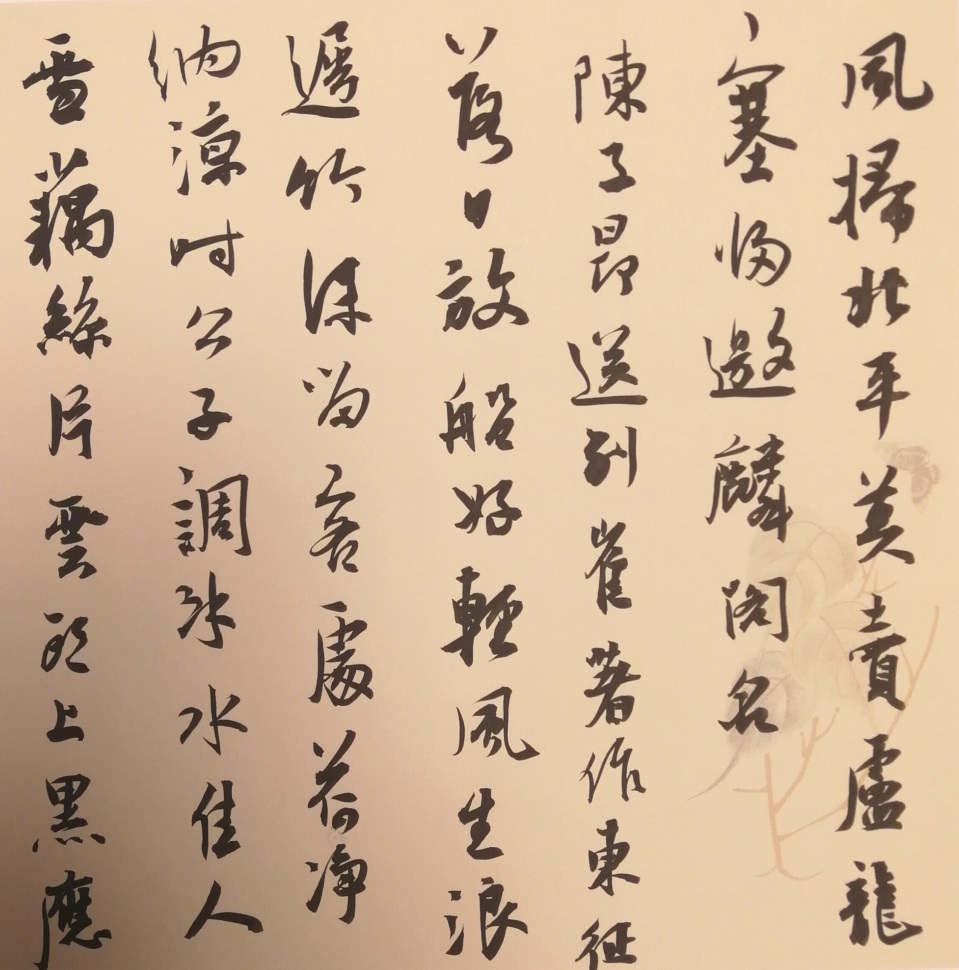 風掃北平莫賣盧龍
塞歸邀麟閣名
陳子昂送別崔著作東征
落日放船好輕風生浪
遲竹深留客處荷淨
納涼時公子調冰水佳人
雪藕絲片雲頭上黑應